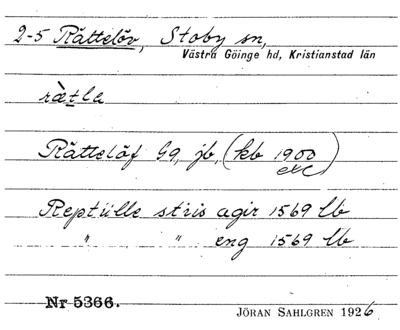 2-5 Rättelöv, Stoby sn,
Västra Göinge hd, Kristianstad län
rä̀tla
Rättelöf Gg, jb, (kb 1900)
etc
Reptülle stris agir 1569 lb
" " eng 1569 lb
Nr 5366.
JÖRAN SAHLGREN 1926